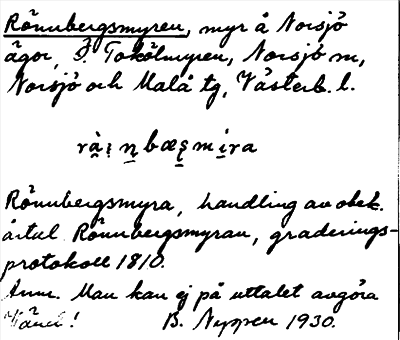 Rönnbergsmyren, myr å Norsjö
ägor, F. Tokölmyren, Norsjö sn,
Norsjö och Malå tg, Västerb. l.
Rönnbergsmyra, handling av obek.
årtal Rönnbergsmyran, graderings-
protokoll 1810.
Anm. Man kan ej på uttalet avgöra
B. Nyppen 1930.